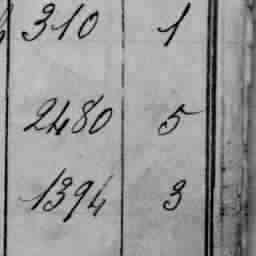 310 1
2480 5
1394 3